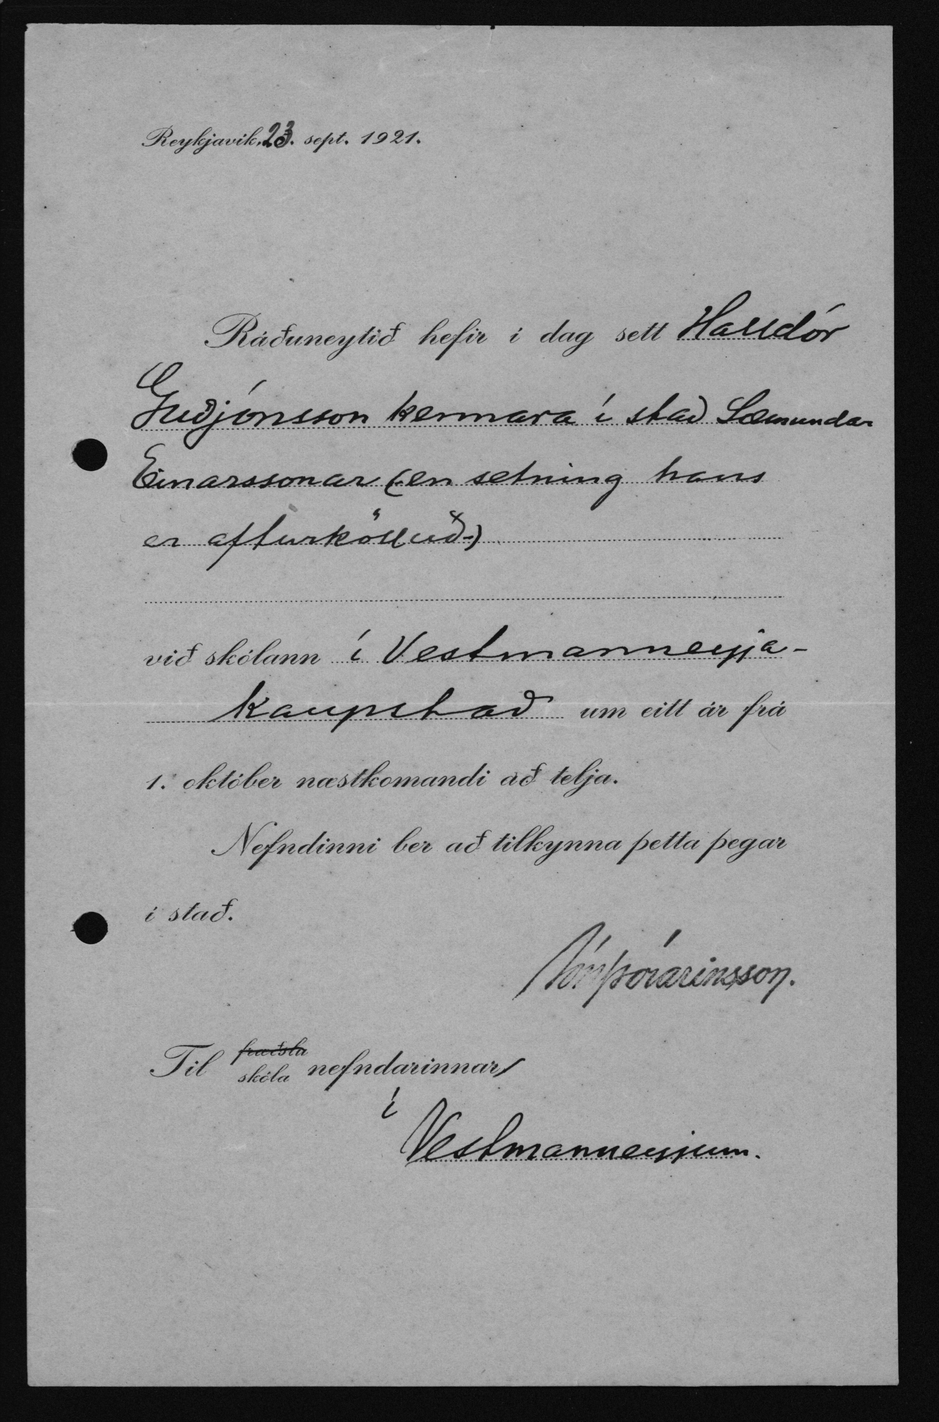 Reykjavik, 23. sept. 1921.
Ráðuneytið hefir í dag sett Halldór
Guðjónsson kennara í stað Sæmundar
Einarssonar (en setning hans
er afturkölluð-)
við skólann í Vestmanneyja-
kaupstað um eitt ár frá
1. október næstkomandi að telja.
Nefndinni ber að tilkynna þetta þegar
í stað.
Jón Þórarinsson.
Til fræðslu
skóla nefndarinnar
í
Vestmanneyjum.